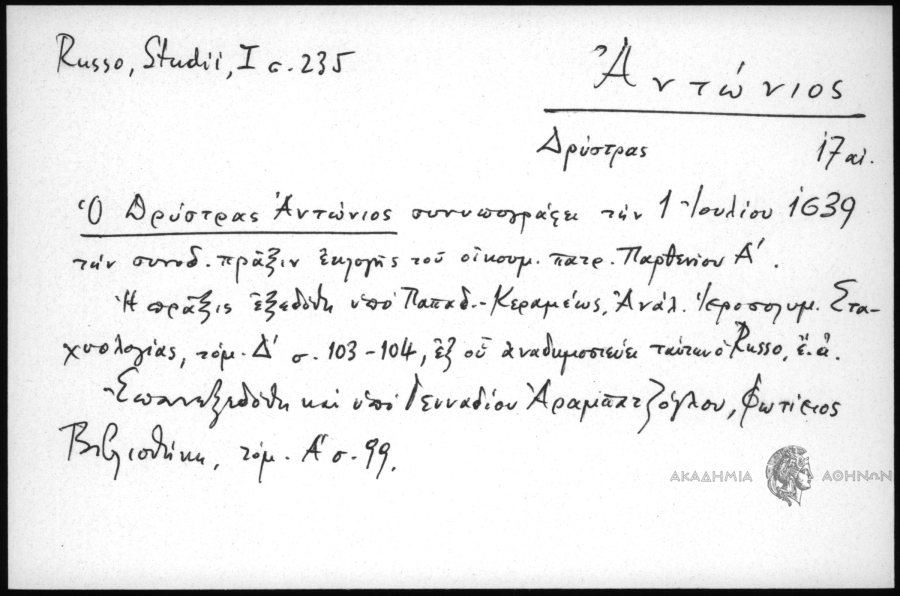 Russo, Studii, I σ. 235
Ἀντώνιος
Δρύστρας 17 αἰ.
Ὁ Δρύστρας Ἀντώνιος συνυπογράφει τὴν 1 Ἰουλίου 1639
τὴν συνοδ. πρᾶξιν ἐκλογῆς τοῦ οἰκουμ. πατρ. Παρθενίου Α΄.
Ἡ πρᾶξις ἐξεδόθη ὑπὸ Παπαδ.-Κεραμέως, Ἀνάλ. Ἱεροσολυμ. Στα-
χυολογίας, τόμ. Δ΄ σ. 103-104, ἐξ οὗ ἀναδημοσιεύει ταύτην ὁ Russo, ἔ.ἀ.
Ἐπανεξεδόθη καὶ ὑπὸ Γενναδίου Ἀραμπατζόγλου, Φωτίειος
Βιβλιοθήκη, τόμ. Α΄ σ. 99.
ΑΚΑΔΗΜΙΑ ΑΘΗΝΩΝ